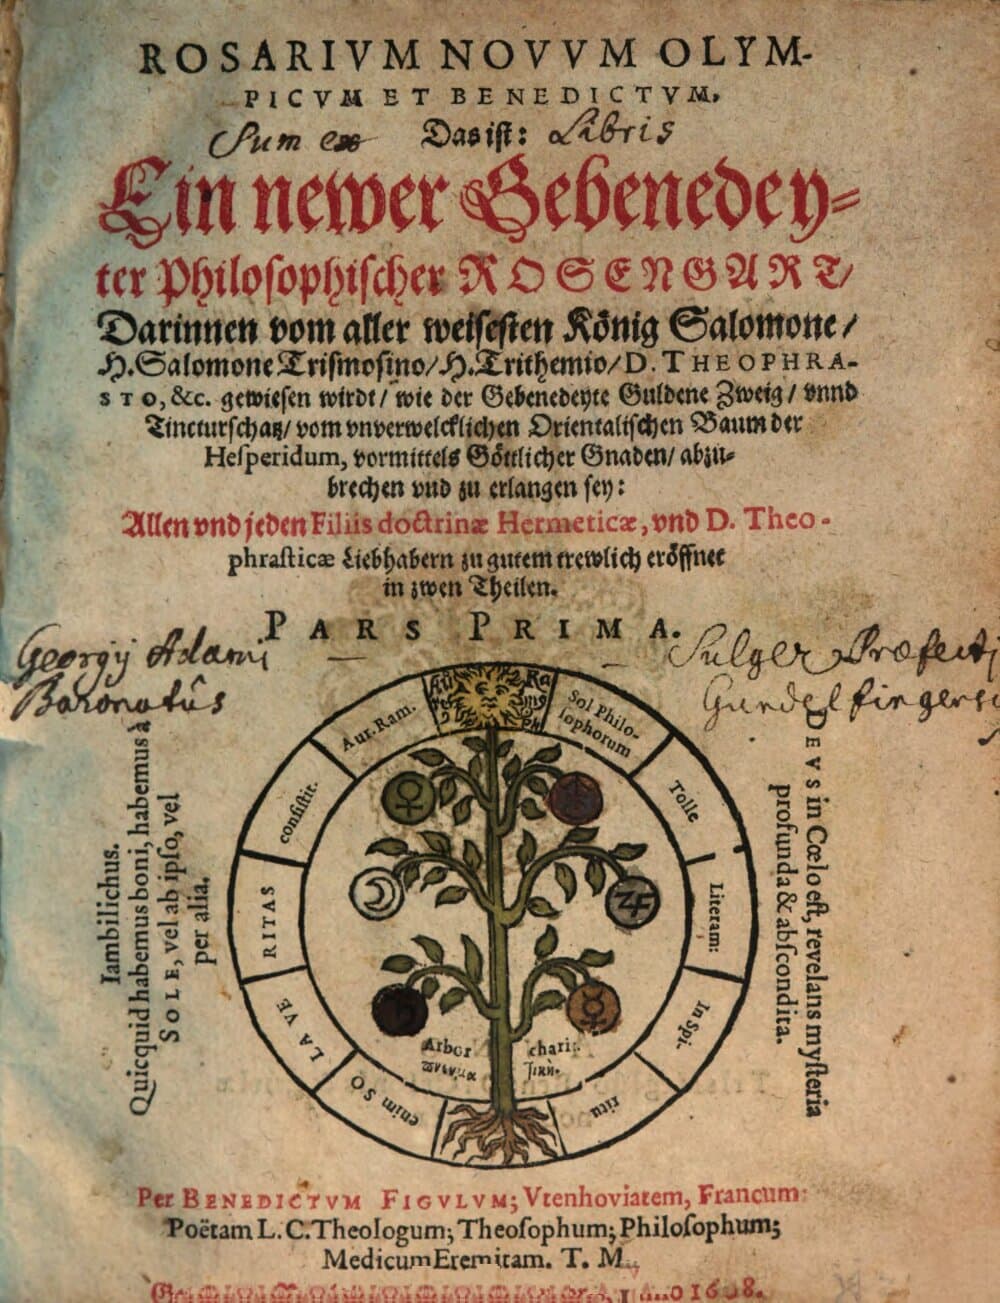 ROSARIVM NOVVM OLYM-
PICVM ET BENEDICTVM,
Sum ex Das ist: Libris
Ein newer Gebenedey-
ter Philosophischer ROSENGART/
Darinnen vom aller weisesten König Salomone/
H. Salomone Trismosino/ H. Trithemio/ D. THEOPHRA-
STO, &c. gewiesen wirdt/ wie der Gebenedeyte Guldene Zweig/ vnnd
Tincturschatz/ vom vnverwelcklichen Orientalischen Baum der
Hesperidum, vormittels Göttlicher Gnaden/ abzu-
brechen vnd zu erlangen sey:
Allen vnd jeden Filiis doctrinæ Hermeticæ, vnd D. Theo-
phrasticæ Liebhabern zu gutem trewlich eröffnet
in zwen Theilen.
PARS PRIMA.
Georgÿ Adami
Baronatûs
Sulger Præfecti
Iambilichus.
Quicquid habemus boni, habemus à
SOLE, vel ab ipso, vel
per alia.
Aur. Ram.
Sol Philo-
sophorum
Tolle
Literam:
In Spi.
ritu
enim SO
LA VE
RITAS
consistit.
Arbor
DEVS in Cœlo est, revelans mysteria
profunda & abscondita.
Per BENEDICTVM FIGVLVM; Vtenhoviatem, Francum:
Poëtam L. C. Theologum; Theosophum; Philosophum;
Medicum Eremitam. T. M.